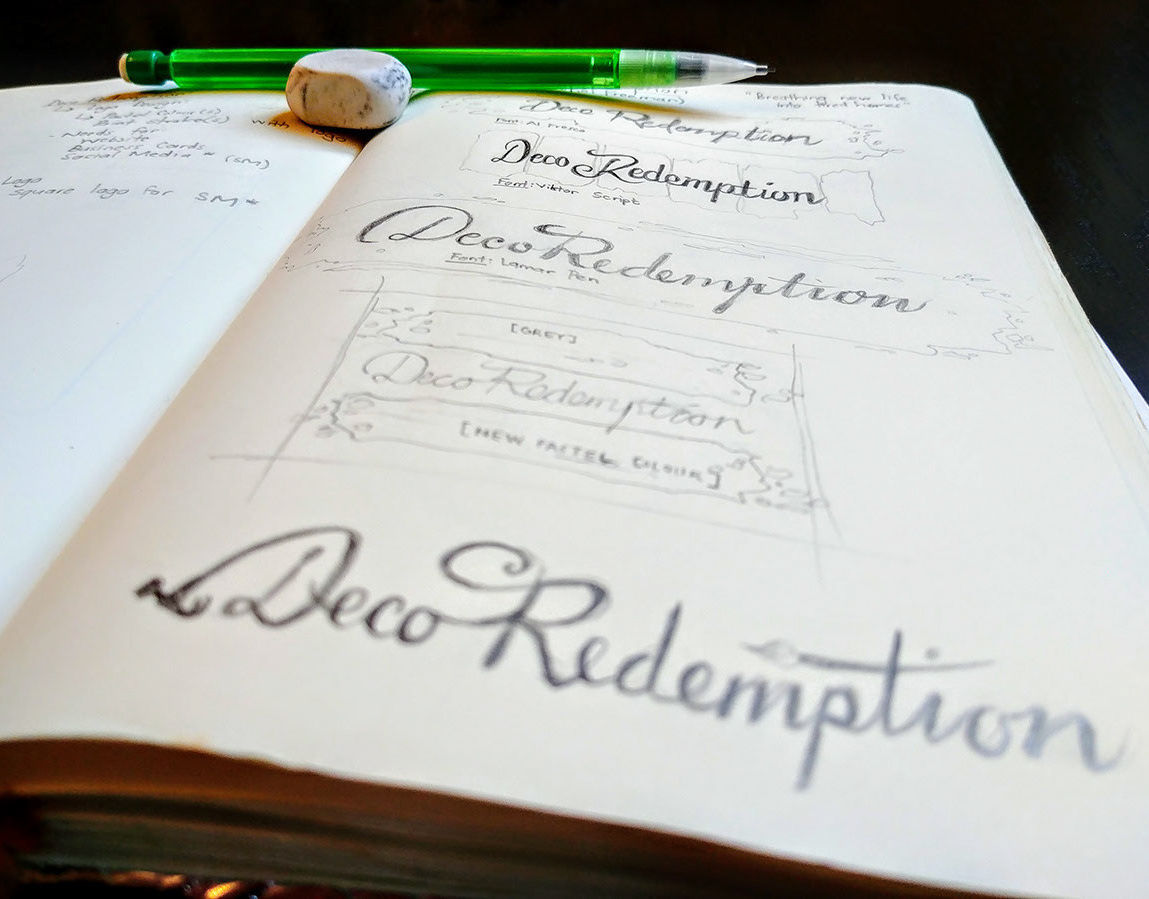 Logo Design
Pastel Colour(s)
with logo
Needs for
Website
Business Cards
Social Media * (SM)
Logo
Square logo for SM *
"Breathing new life
into tired homes"
Deco Redemption
Font: Al Fresco
Deco Redemption
Font: Viktor Script
Deco Redemption
Font: Lamar Pen
[GREY]
Deco Redemption
[NEW PASTEL COLOUR]
Deco Redemption